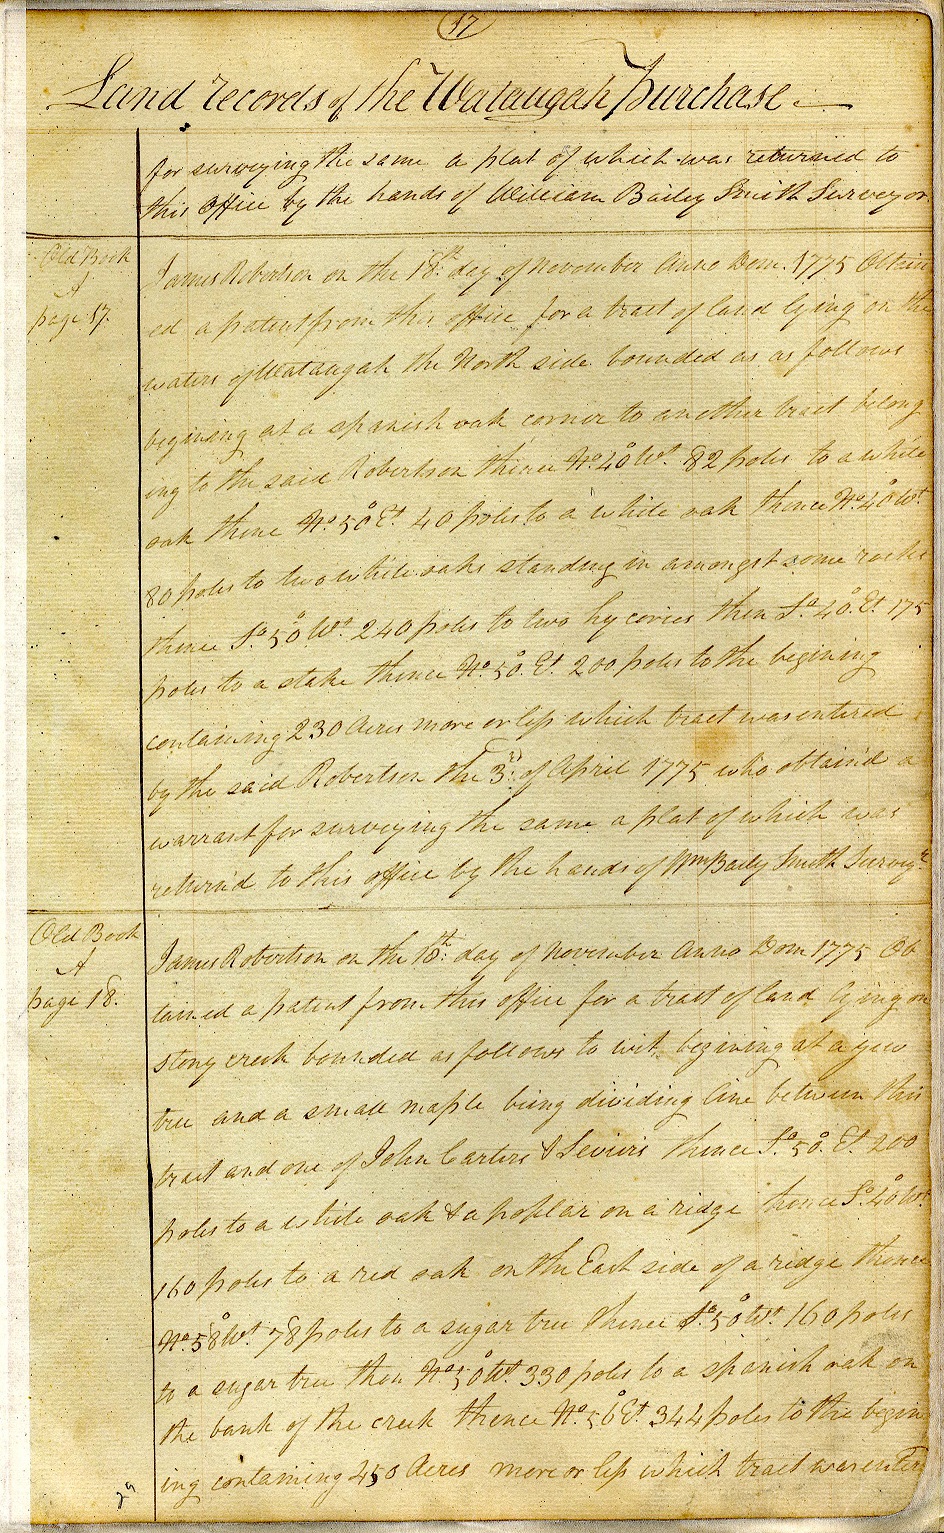 17
Land records of the Wataugah Purchase.
for surveying the same a plat of which was returned to
this Office by the hands of William Bailey Smith Surveyor
Old Book
A
page 17.
James Robertson on the 18th day of November Anno Dom. 1775 Obtain
ed a patent from this office for a tract of land lying on the
waters of Wataugah the North side bounded as as follows
begining at a spanish oak corner to another tract belong
ing to the said Robertson thence No. 40° Wt. 82 poles to a white
oak thence No. 50° Et. 40 poles to a white oak thence No. 40° Wt
80 poles to two white oaks standing in amongst some rocks
thence So 50° Wt 240 poles to two hycories then So 40° Et 175
poles to a stake thence No. 50° Et. 200 poles to the begining
containing 230 Acres more or less which tract was entered
by the said Robertson the 3d. of April 1775 who obtain'd a
warrant for surveying the same a plat of which was
return'd to this office by the hands of Wm Baily Smith Surveyr
Old Book
A
page 18.
James Robertson on the 18th day of November Anno Dom 1775 Ob
tained a patent from this office for a tract of land lying on
stony creek bounded as follows to wit. begining at a
tree and a small maple being dividing line between this
tract and one of John Carters & Seviers thence So 50° Et. 200
poles to a white oak & a poplar on a ridge thence So. 40° Wt.
160 poles to a red oak on the East side of a ridge thence
No. 58° Wt 78 poles to a sugar tree thence So 50° Wt. 160 poles
to a sugar tree then No 50° Wt. 330 poles to a spanish oak on
the bank of the creek thence No. 56° Et. 344 poles to the begin
ing containing 450 Acres more or less which tract was enter
29